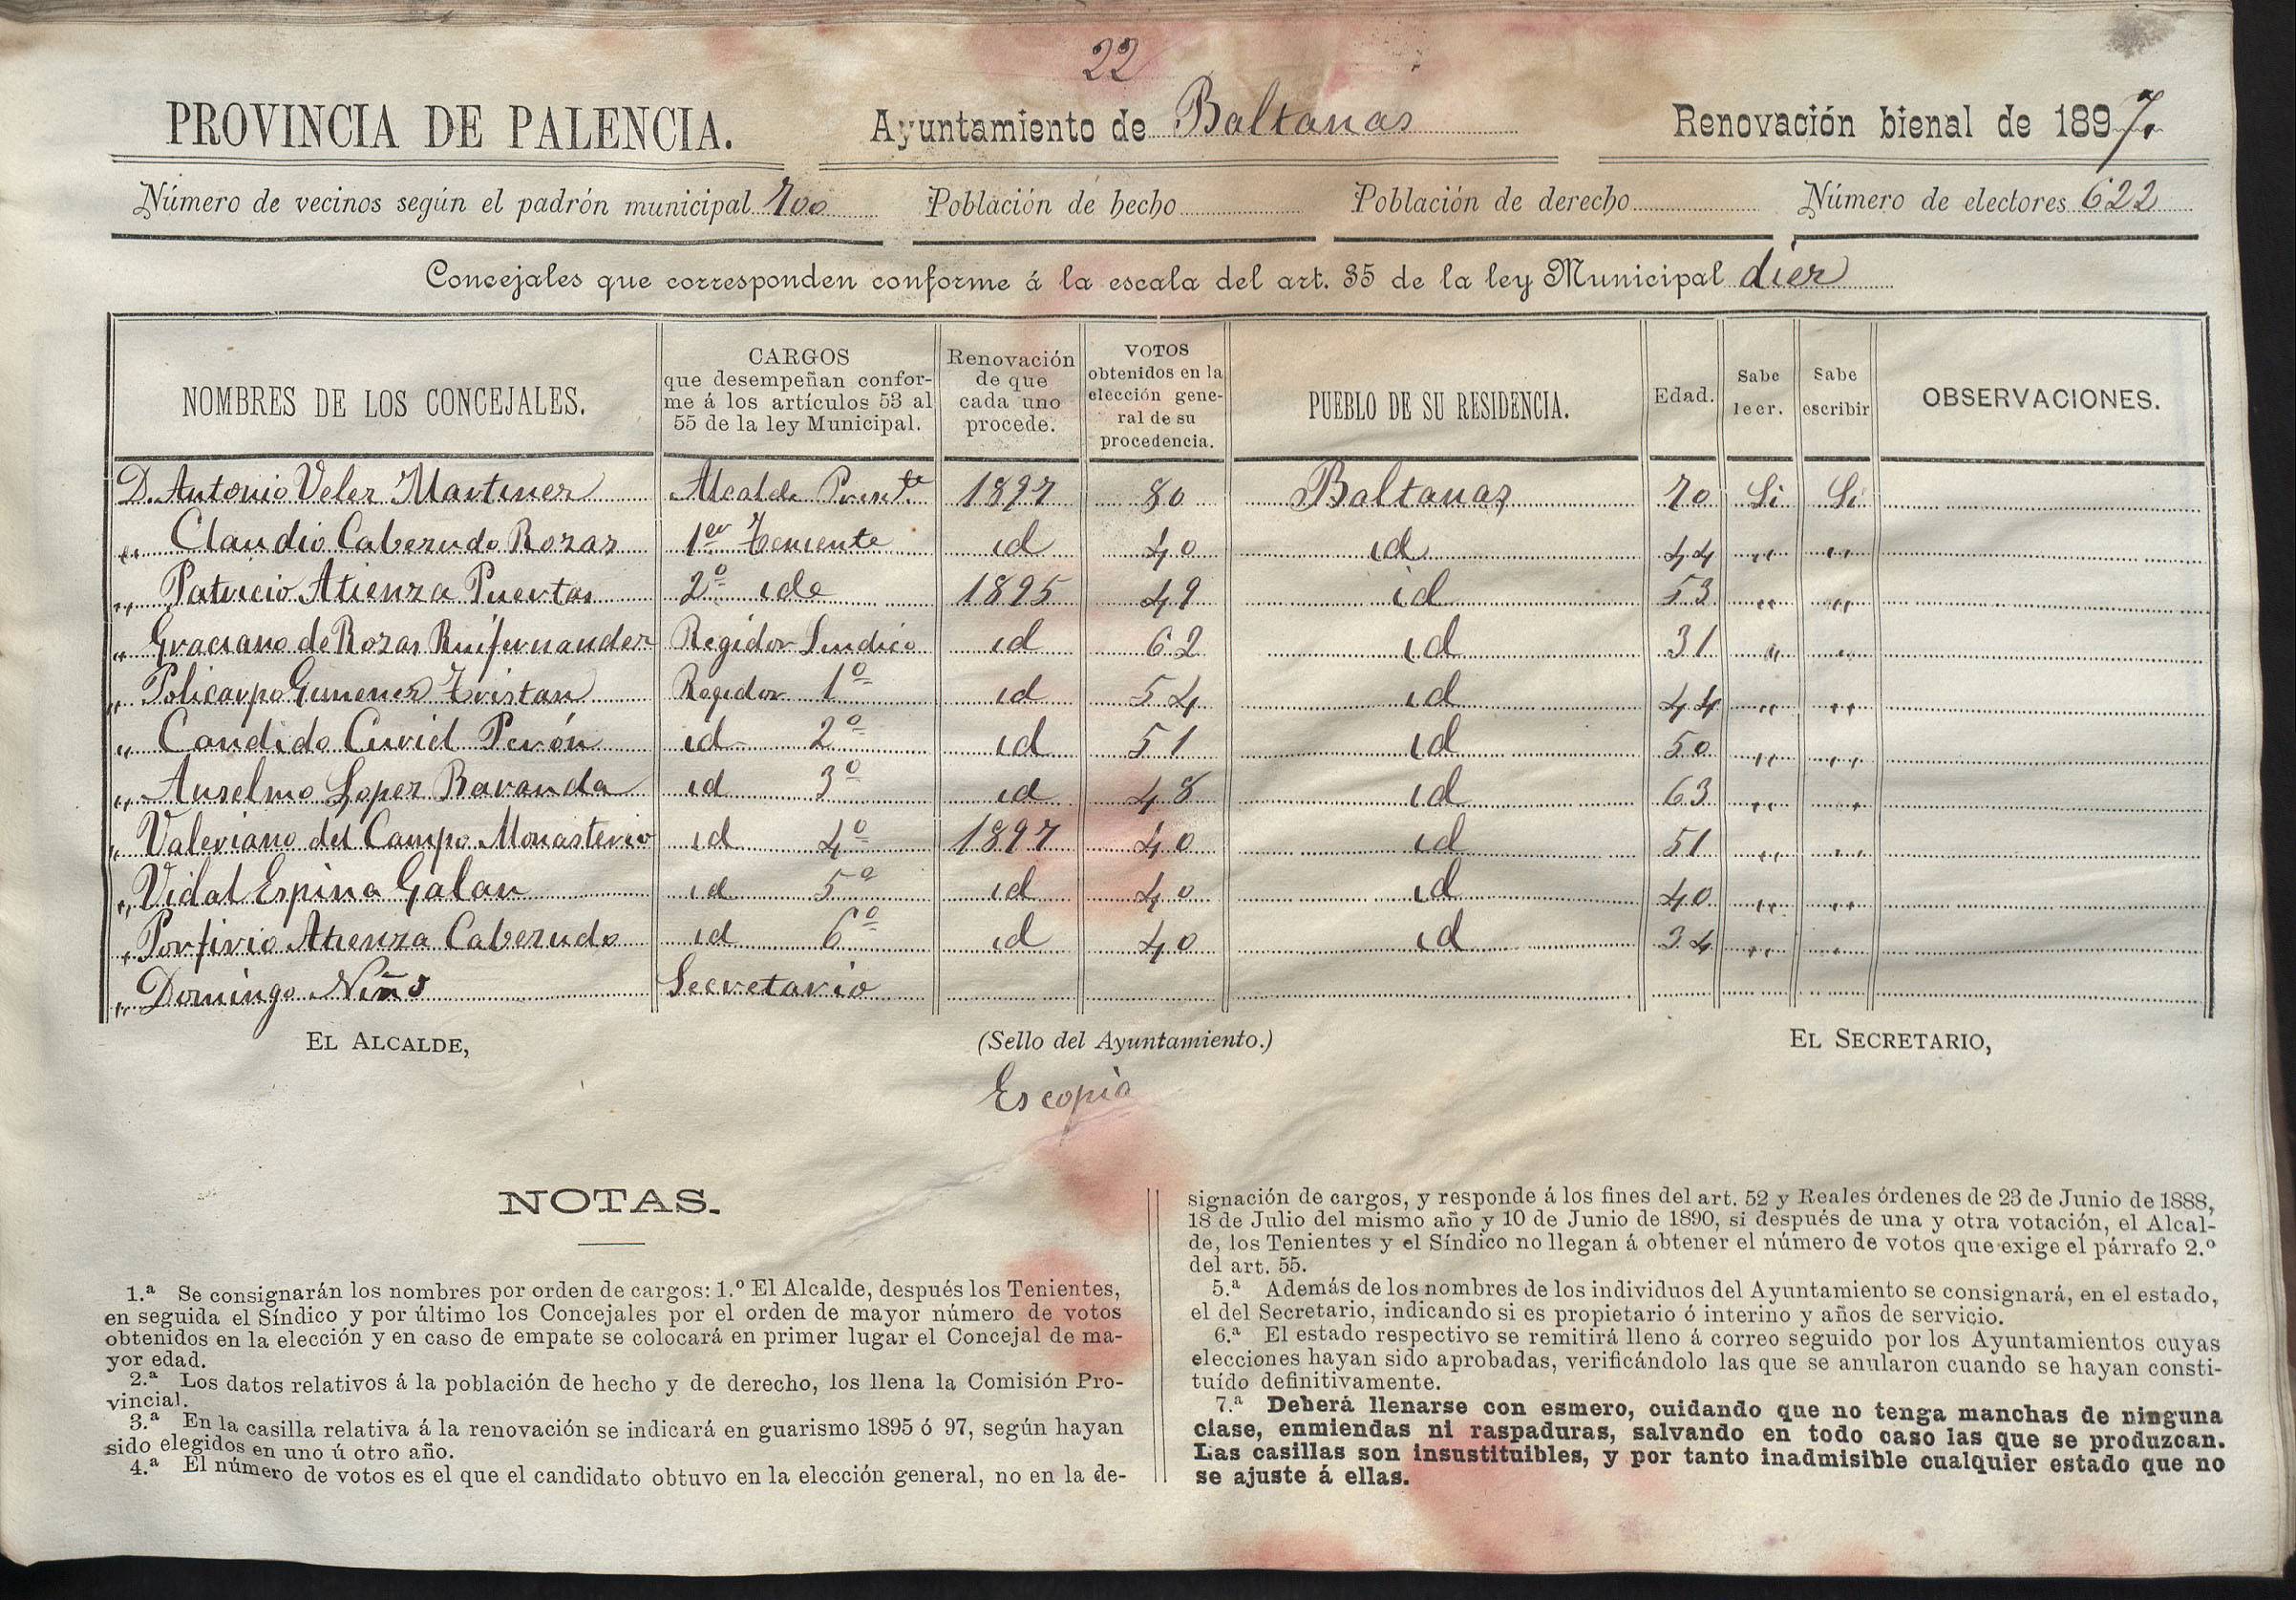 22
PROVINCIA DE PALENCIA. Ayuntamiento de Baltanas Renovación bienal de 1897.
Número de vecinos según el padrón municipal 700 Población de hecho Población de derecho Número de electores 622
Concejales que corresponden conforme á la escala del art. 35 de la ley Municipal diez
NOMBRES DE LOS CONCEJALES. CARGOS que desempeñan conforme á los artículos 53 al 55 de la ley Municipal. Renovación de que cada uno procede. VOTOS obtenidos en la elección general de su procedencia. PUEBLO DE SU RESIDENCIA. Edad. Sabe leer. Sabe escribir OBSERVACIONES.
D. Antonio Velez Martinez Alcalde Presi^te 1897 80 Baltanas 70 Si Si
„ Claudio Cabezudo Rozas 1er Teniente id 40 id 44 „ „
„ Patricio Atienza Puertas 2º ide 1895 49 id 53 „ „
„ Graciano de Rozas Ruifernandez Regidor Sindico id 62 id 31 „ „
„ Policarpo Gimenez Tristan Regidor 1º id 54 id 44 „ „
„ Candido Curiel Perón id 2º id 51 id 50 „ „
„ Anselmo Lopez Baranda id 3º id 48 id 63 „ „
„ Valeriano del Campo Monasterio id 4º 1897 40 id 51 „ „
„ Vidal Espina Galan id 5º id 40 id 40 „ „
„ Porfirio Atienza Cabezudo id 6º id 40 id 34 „ „
„ Domingo Niño Secretario
EL ALCALDE, (Sello del Ayuntamiento.) EL SECRETARIO,
Es copia
NOTAS.
1.ª Se consignarán los nombres por orden de cargos: 1.º El Alcalde, después los Tenientes,
en seguida el Síndico y por último los Concejales por el orden de mayor número de votos
obtenidos en la elección y en caso de empate se colocará en primer lugar el Concejal de ma-
yor edad.
2.ª Los datos relativos á la población de hecho y de derecho, los llena la Comisión Pro-
vincial.
3.ª En la casilla relativa á la renovación se indicará en guarismo 1895 ó 97, según hayan
sido elegidos en uno ú otro año.
4.ª El número de votos es el que el candidato obtuvo en la elección general, no en la de-
signación de cargos, y responde á los fines del art. 52 y Reales órdenes de 23 de Junio de 1888,
18 de Julio del mismo año y 10 de Junio de 1890, si después de una y otra votación, el Alcal-
de, los Tenientes y el Síndico no llegan á obtener el número de votos que exige el párrafo 2.º
del art. 55.
5.ª Además de los nombres de los individuos del Ayuntamiento se consignará, en el estado,
el del Secretario, indicando si es propietario ó interino y años de servicio.
6.ª El estado respectivo se remitirá lleno á correo seguido por los Ayuntamientos cuyas
elecciones hayan sido aprobadas, verificándolo las que se anularon cuando se hayan consti-
tuído definitivamente.
7.ª Deberá llenarse con esmero, cuidando que no tenga manchas de ninguna
clase, enmiendas ni raspaduras, salvando en todo caso las que se produzcan.
Las casillas son insustituibles, y por tanto inadmisible cualquier estado que no
se ajuste á ellas.